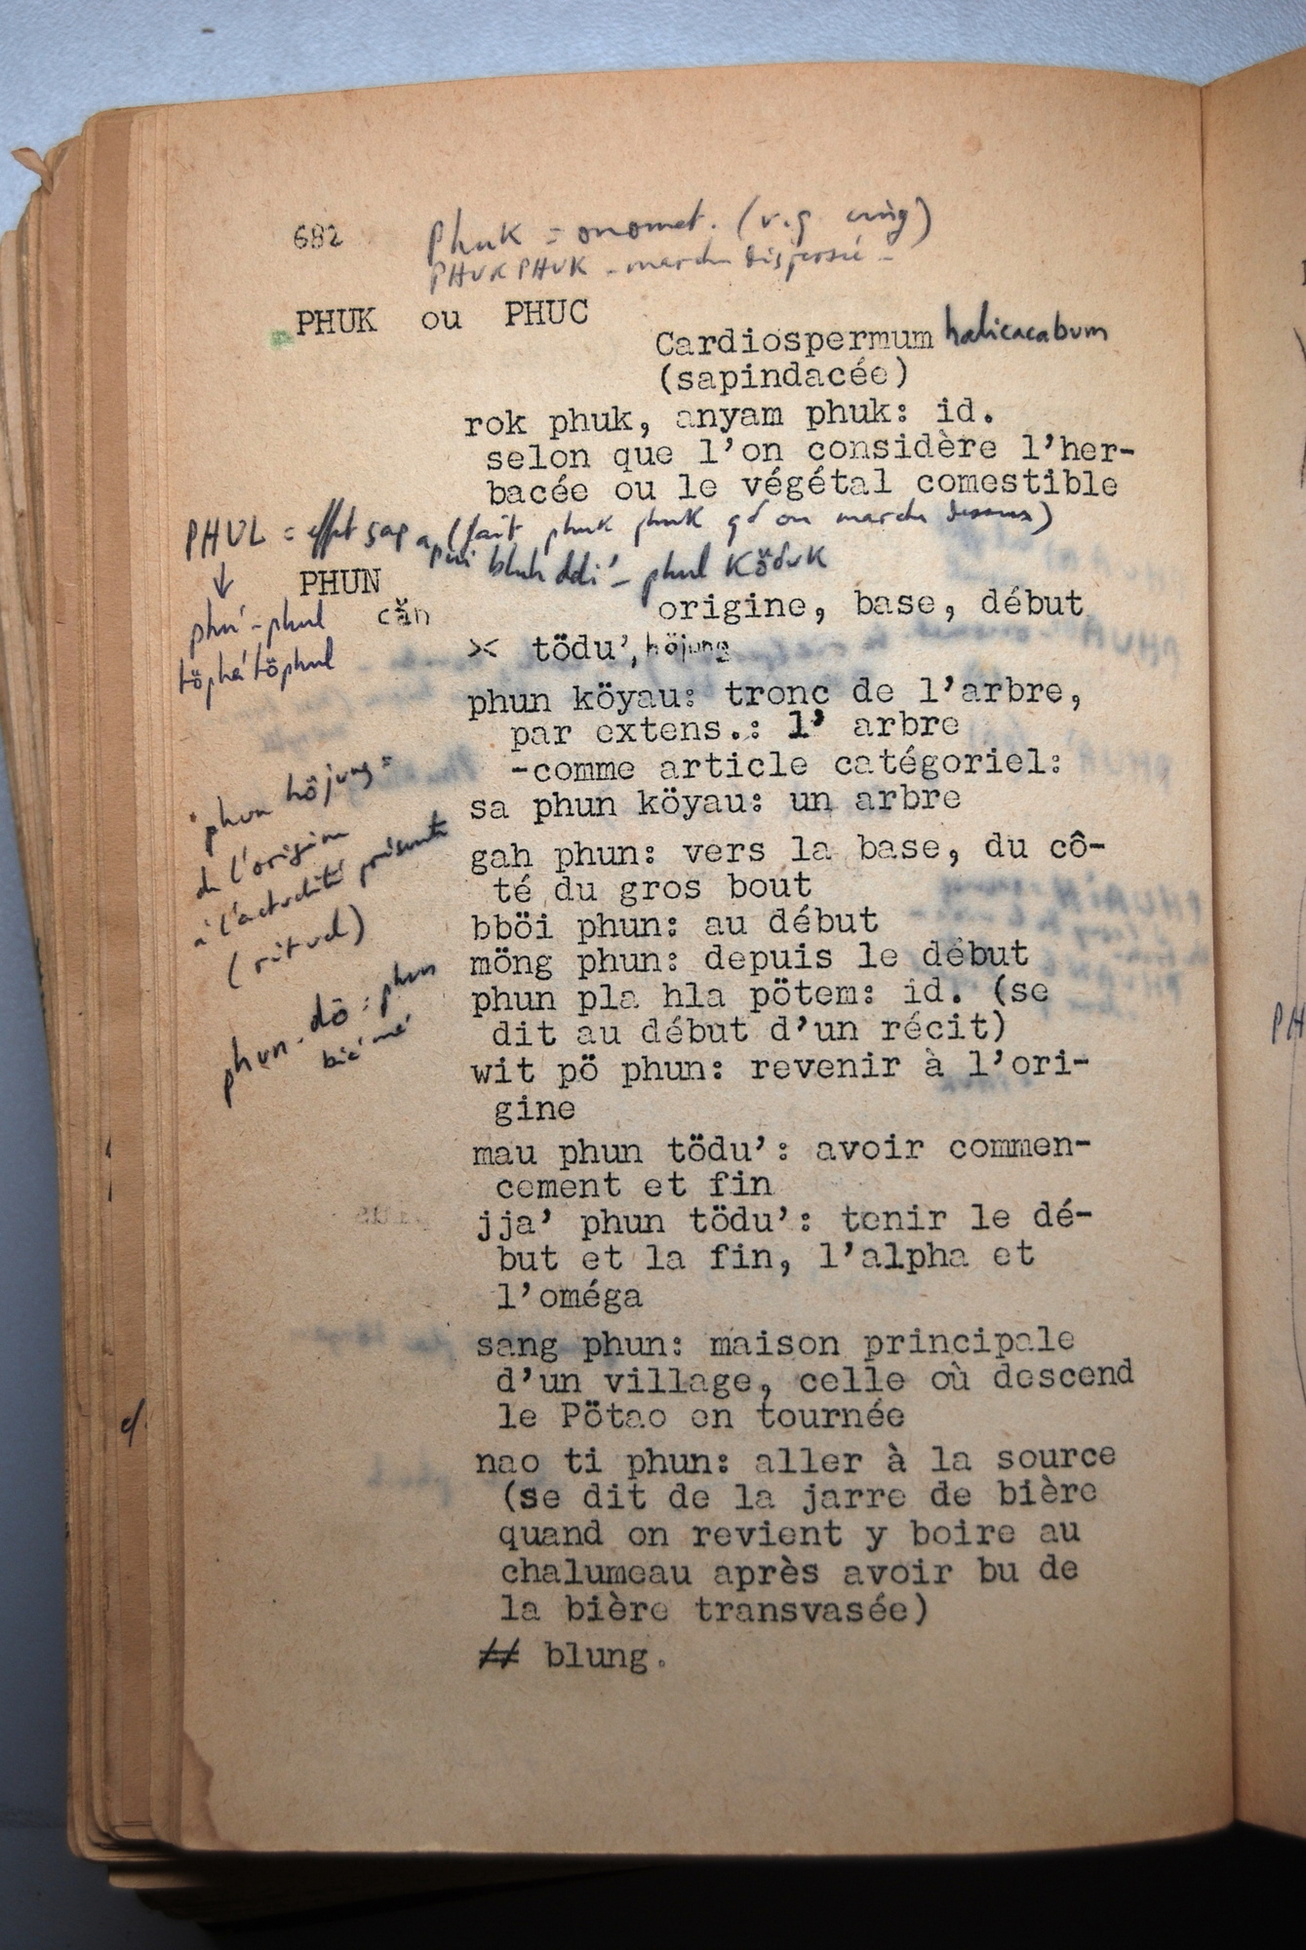 682
Phuk = onomat. (v.g cing)
PHUKPHUK - marche dispersé -
PHUK ou PHUC
Cardiospermum halicacabum
(sapindacée)
rok phuk, anyam phuk: id.
selon que l'on considère l'her-
bacée ou le végétal comestible
PHUL = effet (fait phuk phuk qd on marche dessus)
bluh ddi' - phul Köduk
PHUN
phu' - phul
căn
origine, base, début
töpha' töphul
>< tödu', höjung
phun köyau: tronc de l'arbre,
par extens.: l' arbre
-comme article catégoriel:
"phun höjung"
sa phun köyau: un arbre
de l'origine
à l'actualité présente
(rituel)
gah phun: vers la base, du cô-
té du gros bout
bböi phun: au début
möng phun: depuis le début
phun - dô = phun
phun pla hla pötem: id. (se
dit au début d'un récit)
wit pö phun: revenir à l'ori-
gine
mau phun tödu': avoir commen-
cement et fin
jja' phun tödu': tenir le dé-
but et la fin, l'alpha et
l'oméga
sang phun: maison principale
d'un village, celle où descend
le Pötao en tournée
nao ti phun: aller à la source
(se dit de la jarre de bière
quand on revient y boire au
chalumeau après avoir bu de
la bière transvasée)
## blung.
PH